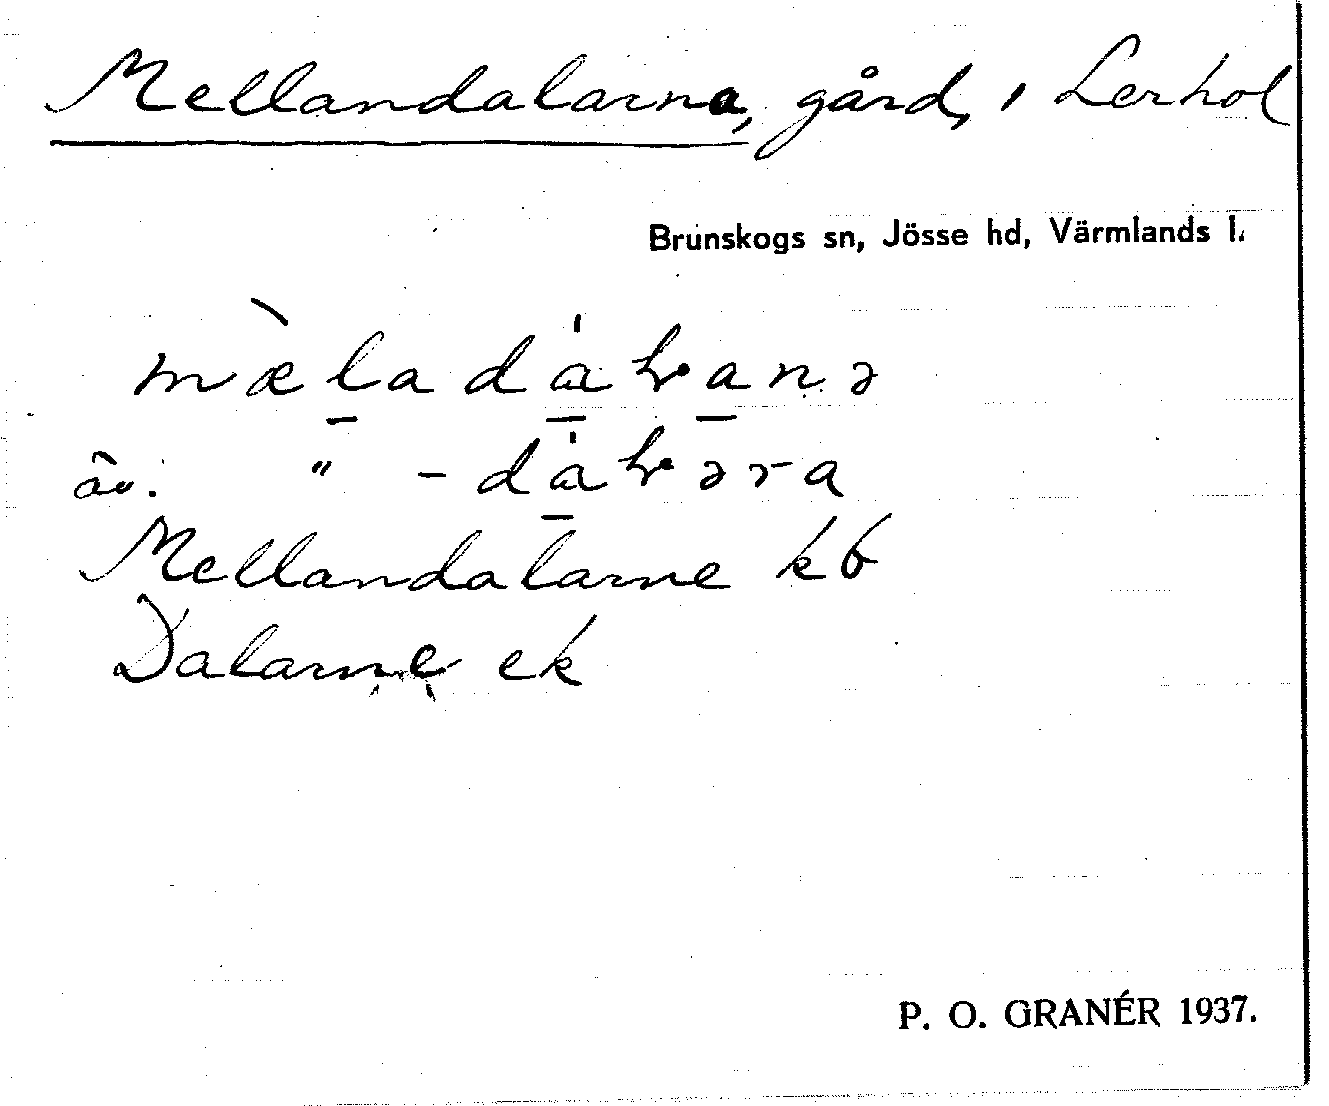 Mellandalarna, gård, i Lerhol
Brunskogs sn, Jösse hd, Värmlands l.
mæ̀ladáƚanə
äv. " -dáƚəra
Mellandalarne kb
Dalarne ek
P. O. GRANÉR 1937.